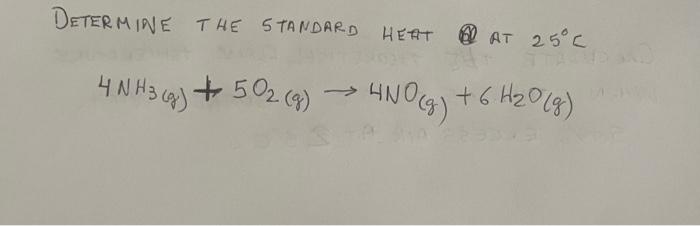 DETERMINE THE STANDARD HEAT AT 25°C
4NH3(g) + 5O2(g) → 4NO(g) + 6H2O(g)